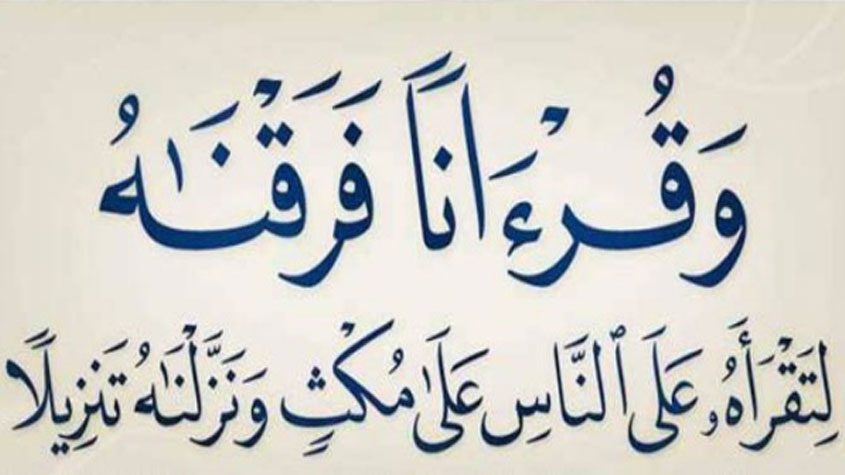 وَقُرْءَانًا فَرَقْنَٰهُ
لِتَقْرَأَهُۥ عَلَى ٱلنَّاسِ عَلَىٰ مُكْثٍ وَنَزَّلْنَٰهُ تَنزِيلًا